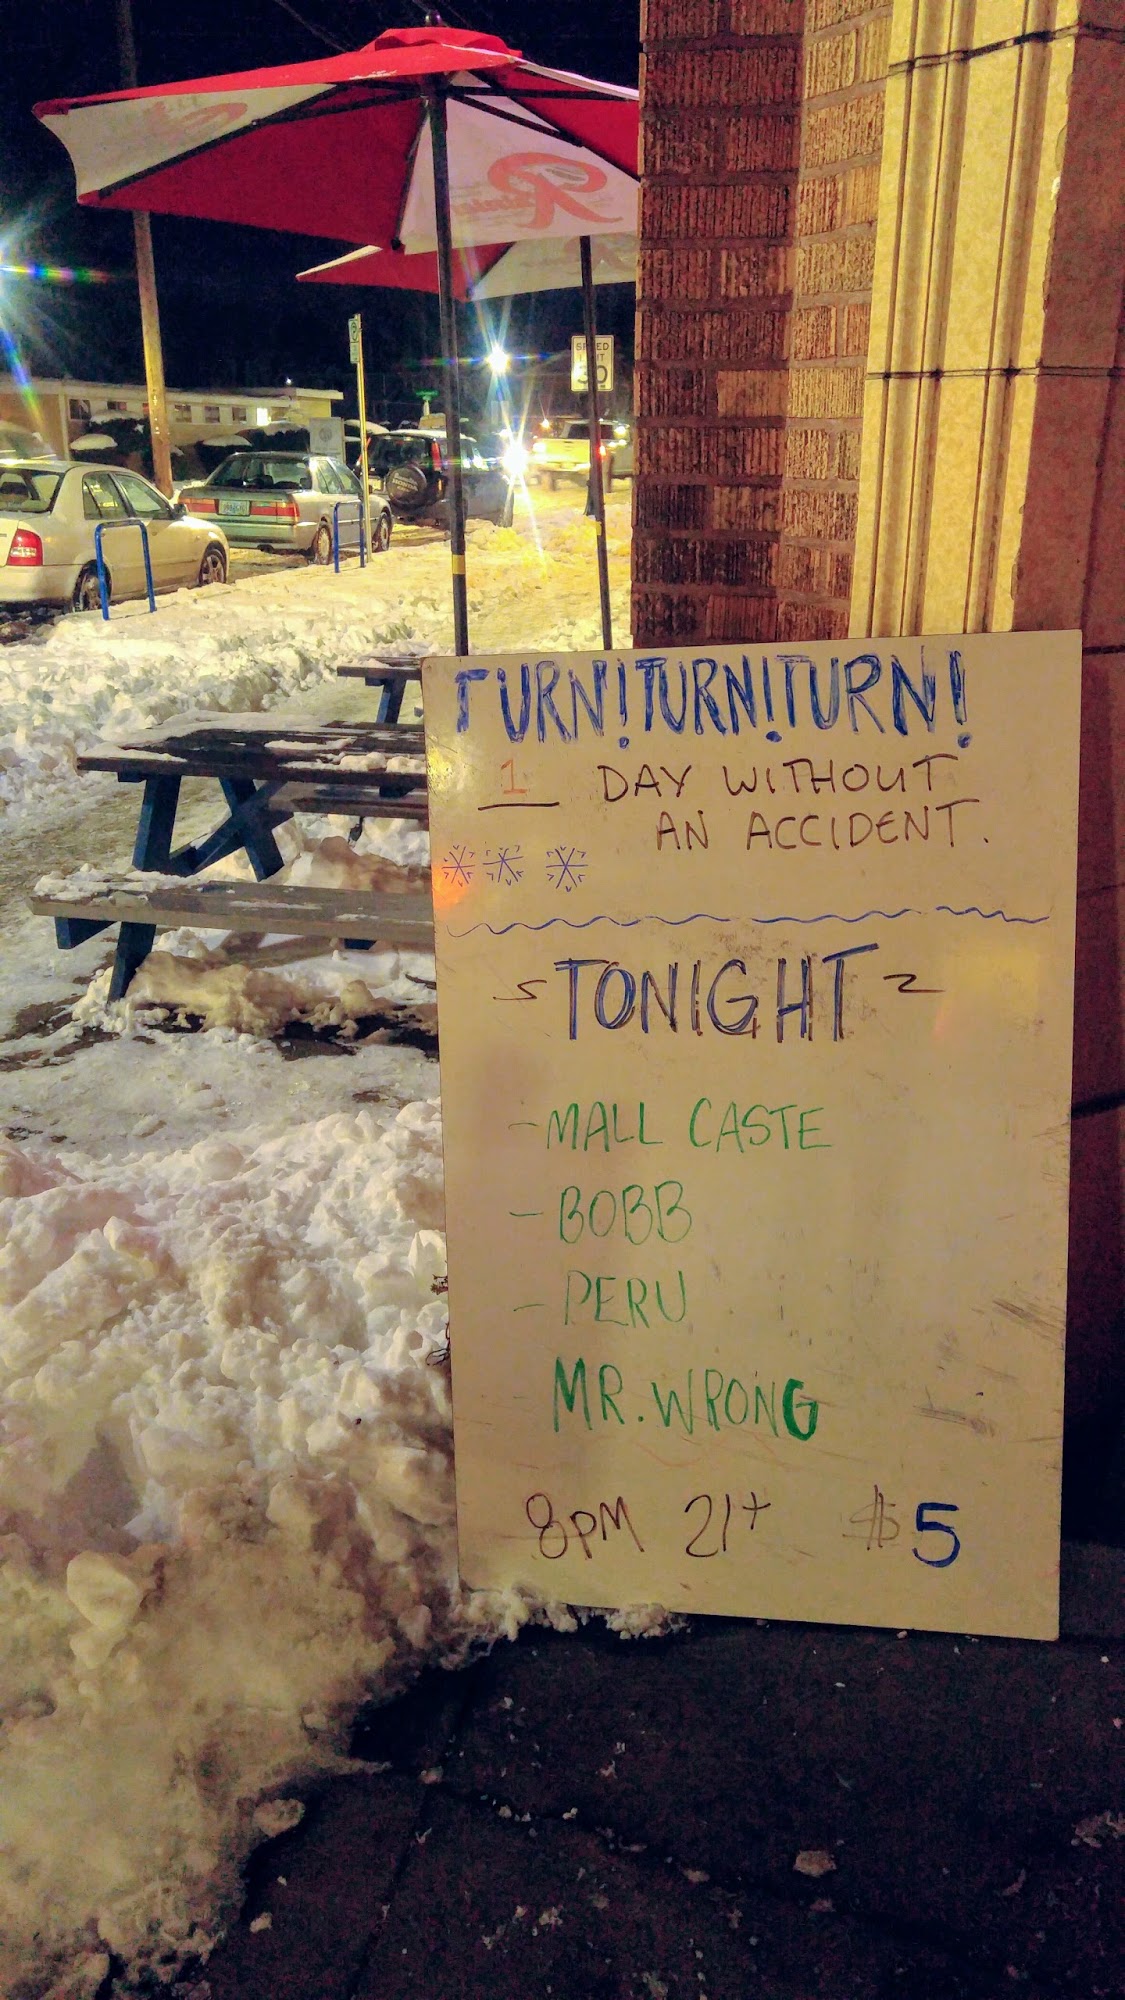 Rainier
SPEED
LIMIT
30
HONDA
TURN!TURN!TURN!
1 DAY WITHOUT
AN ACCIDENT.
TONIGHT
- MALL CASTE
- BOBB
- PERU
- MR. WRONG
8PM 21+ $5